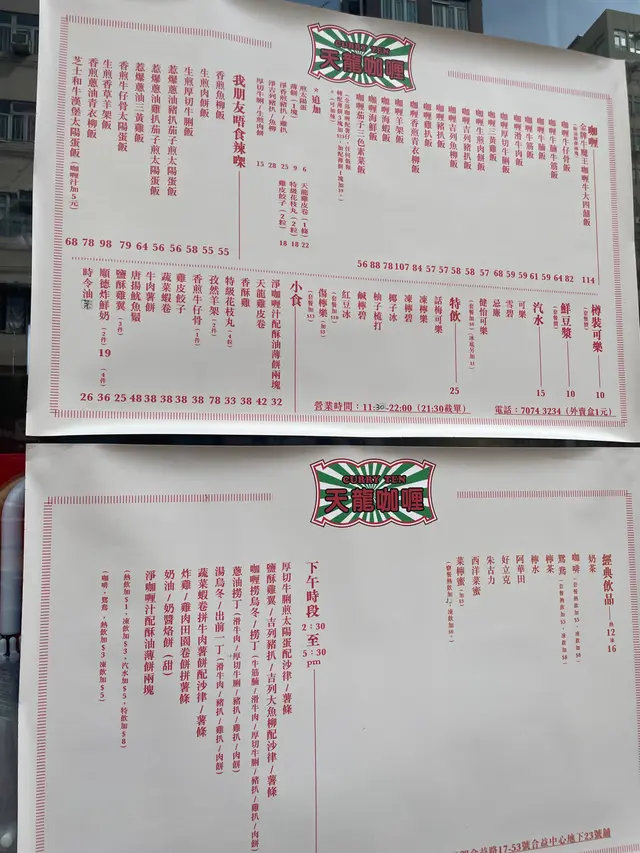 CURRY TEN
天龍咖喱
咖喱
金牌牛魔王 咖喱牛大四囍飯 114
咖喱牛仔骨飯 82
咖喱牛腩飯 64
咖喱牛筋飯
咖喱滑牛肉飯
咖喱厚切牛脷飯
咖喱三黃雞飯
咖喱生煎肉餅飯
咖喱吉列魚柳飯
咖喱吉列豬扒飯
咖喱豬扒飯
咖喱雞扒飯
咖喱香煎青衣柳飯
咖喱羊架飯
咖喱海蝦飯
咖喱海鮮飯
咖喱茄子三色素菜飯 56
追加
煎太陽蛋 6
薄餅(1塊) 9
淨香煎豬扒/雞扒 25
淨吉列豬扒/魚柳 28
厚切牛脷/生煎肉餅 15
天龍雞皮卷(1條) 22
特級花枝丸(2粒) 18
雞皮餃子(2粒) 18
我朋友唔食辣㗎
香煎魚柳飯 55
生煎肉餅飯 55
生煎厚切牛脷飯 58
惹爆蔥油豬扒茄子煎太陽蛋飯 56
惹爆蔥油雞扒茄子煎太陽蛋飯 56
惹爆蔥油三黃雞飯 64
香煎蔥油青衣柳飯 79
香煎牛仔骨太陽蛋飯 98
生煎香草羊架飯 78
芝士和牛漢堡太陽蛋飯(咖喱汁加5元) 68
樽裝可樂 10
(套餐價)
鮮豆漿 10
(套餐價)
汽水 15
(套餐價)
可樂
雪碧
忌廉
健怡可樂
特飲 25
話梅可樂
凍檸樂
凍檸碧
椰子冰
柚子梳打
鹹檸碧
紅豆冰
(套餐加$10)
傷檸樂(加$3)
小食
淨咖喱汁配酥油薄餅兩塊 32
天龍雞皮卷 42
香酥雞 38
特級花枝丸(4粒) 33
孜然羊架(2件) 78
香煎牛仔骨(1件) 38
雞皮餃子 38
蔬菜蝦卷 38
牛肉薯餅 38
唐揚魷魚鬚 48
鹽酥雞翼(3件) 25
順德炸鮮奶(2件)19 (4件)36
時令油菜 26
營業時間:11:30-22:00 (21:30截單)
電話:7074 3234 (外賣盒1元)
CURRY TEN
天龍咖喱
經典飲品 熱12 凍16
奶茶
咖啡
鴛鴦
檸茶
檸水
阿華田
好立克
朱古力
西洋菜蜜
菜檸蜜(加$3)
下午時段
2:30
至
5:30
pm
厚切牛脷煎太陽蛋配沙律/薯條
鹽酥雞翼/吉列豬扒/吉列大魚柳配沙律/薯條
咖喱撈烏冬/撈丁(牛筋腩/滑牛肉/厚切牛脷/豬扒/雞扒/肉餅)
蔥油撈丁(滑牛肉/厚切牛脷/豬扒/雞扒/肉餅)
湯烏冬/出前一丁(滑牛肉/豬扒/雞扒/肉餅)
蔬菜蝦卷拼牛肉薯餅配沙律/薯條
炸雞/雞肉田園卷餅拼薯條
奶油/奶醬烙餅(甜)
淨咖喱汁配酥油薄餅兩塊
(熱飲加$1,凍飲加$3,汽水加$5,特飲加$8)
(咖啡,鴛鴦,熱飲加$3 凍飲加$5)
合益路17-53號合益中心地下23號舖